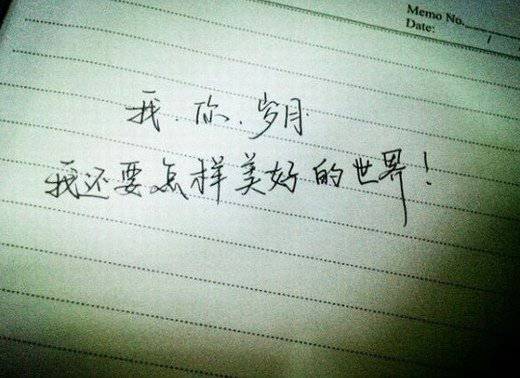 Memo No.
Date: /
我.你.岁月
我还要怎样美好的世界!